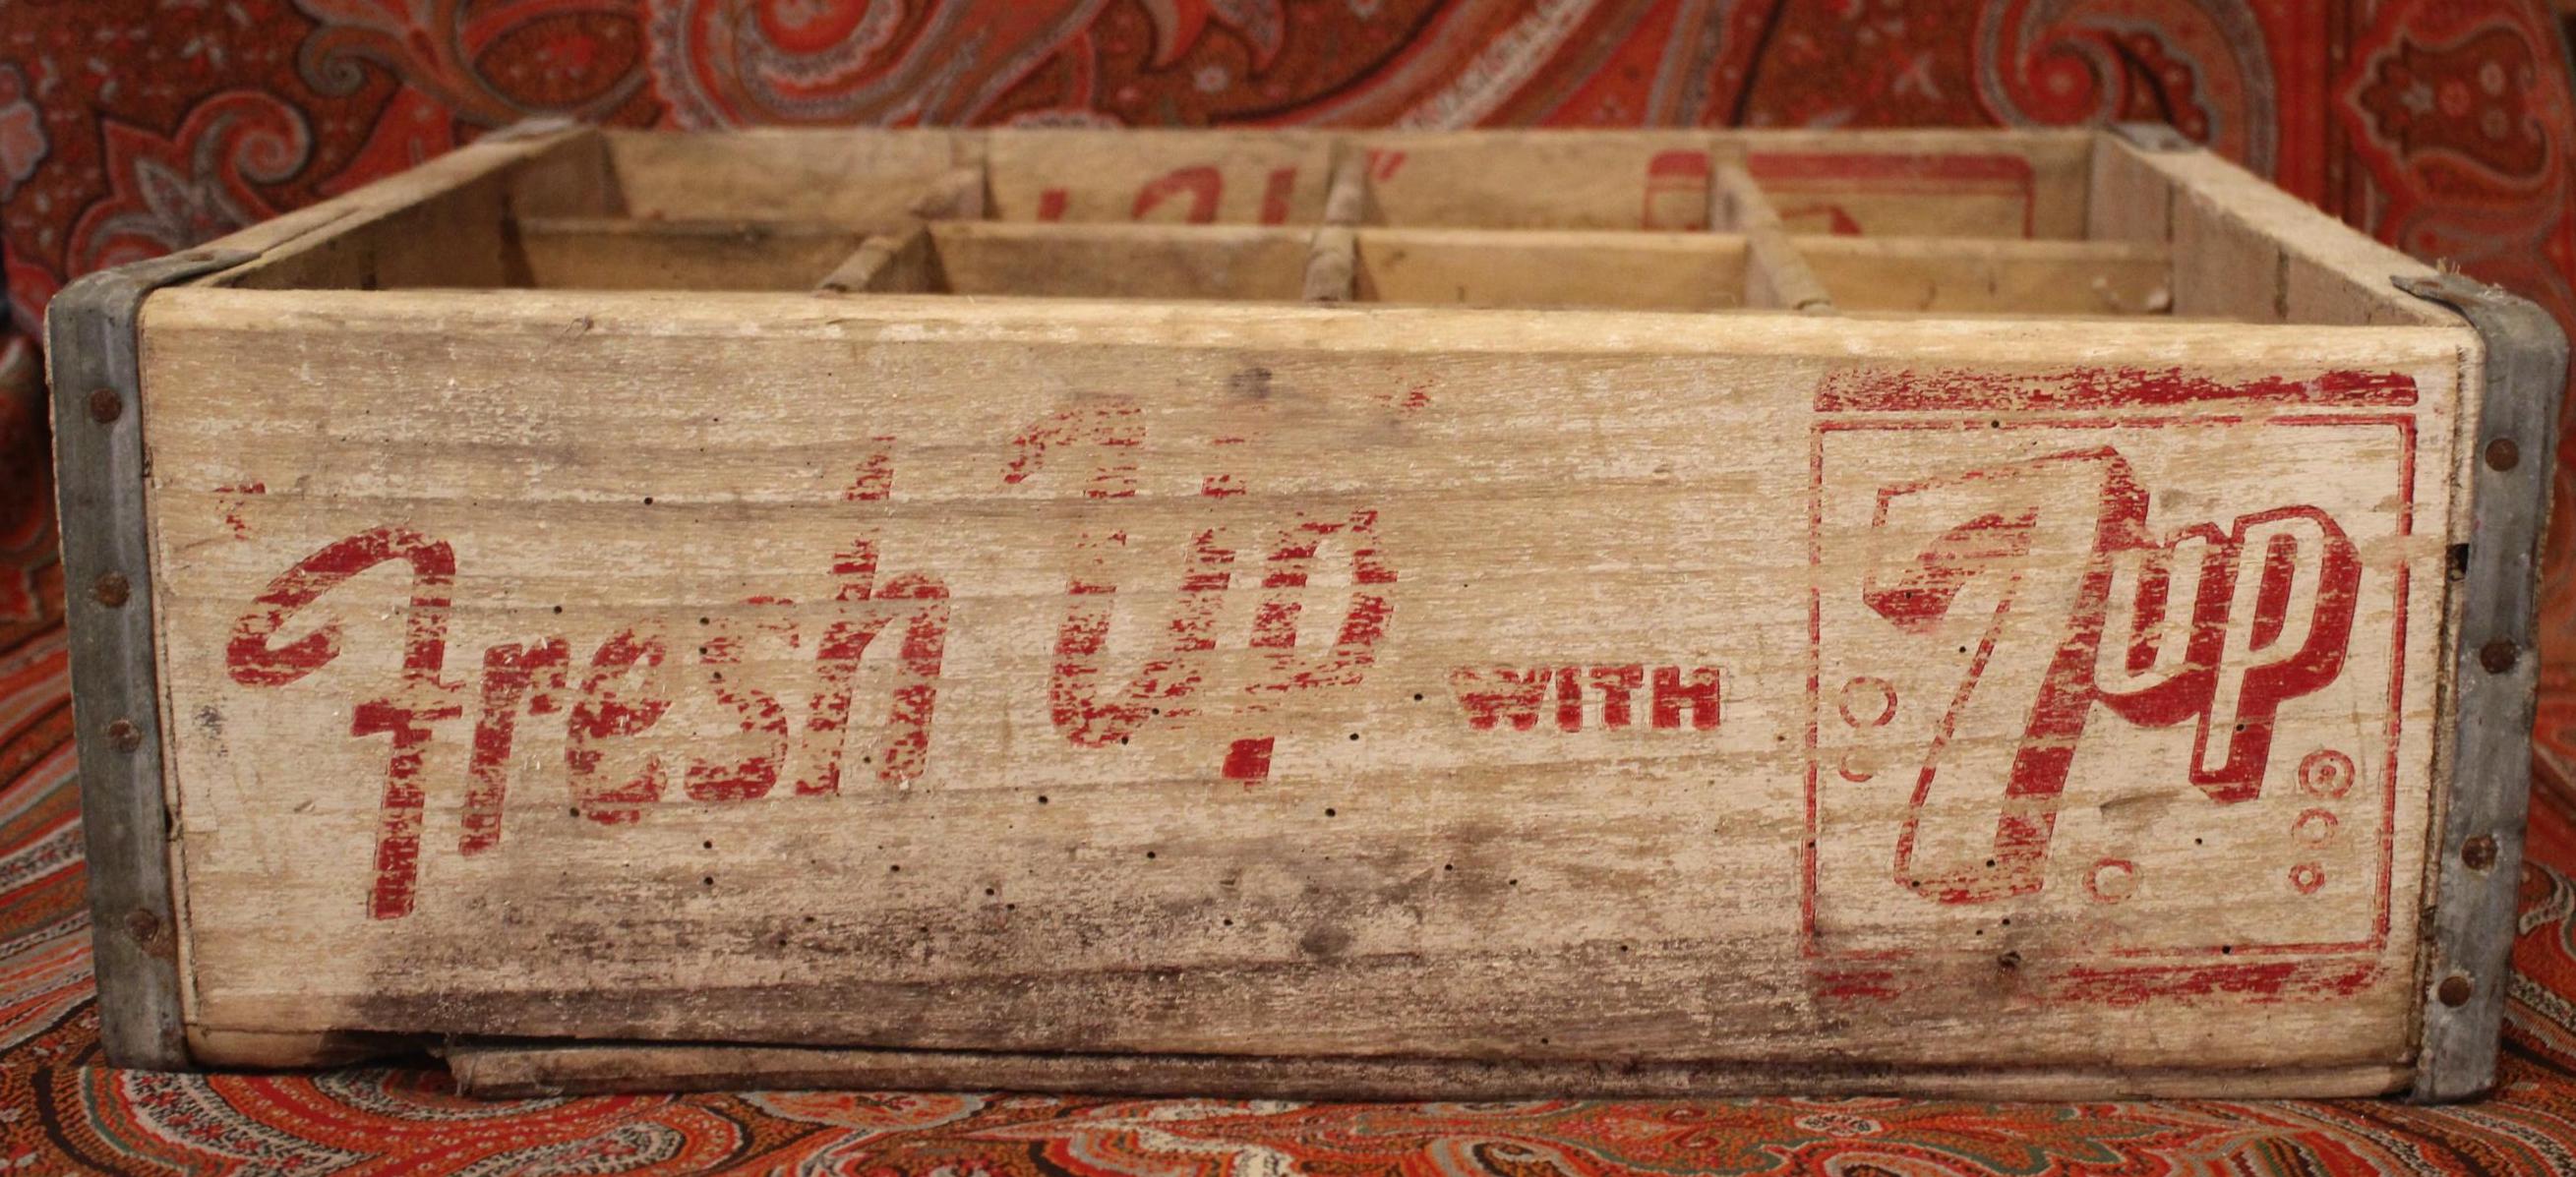 "Fresh Up" WITH 7up